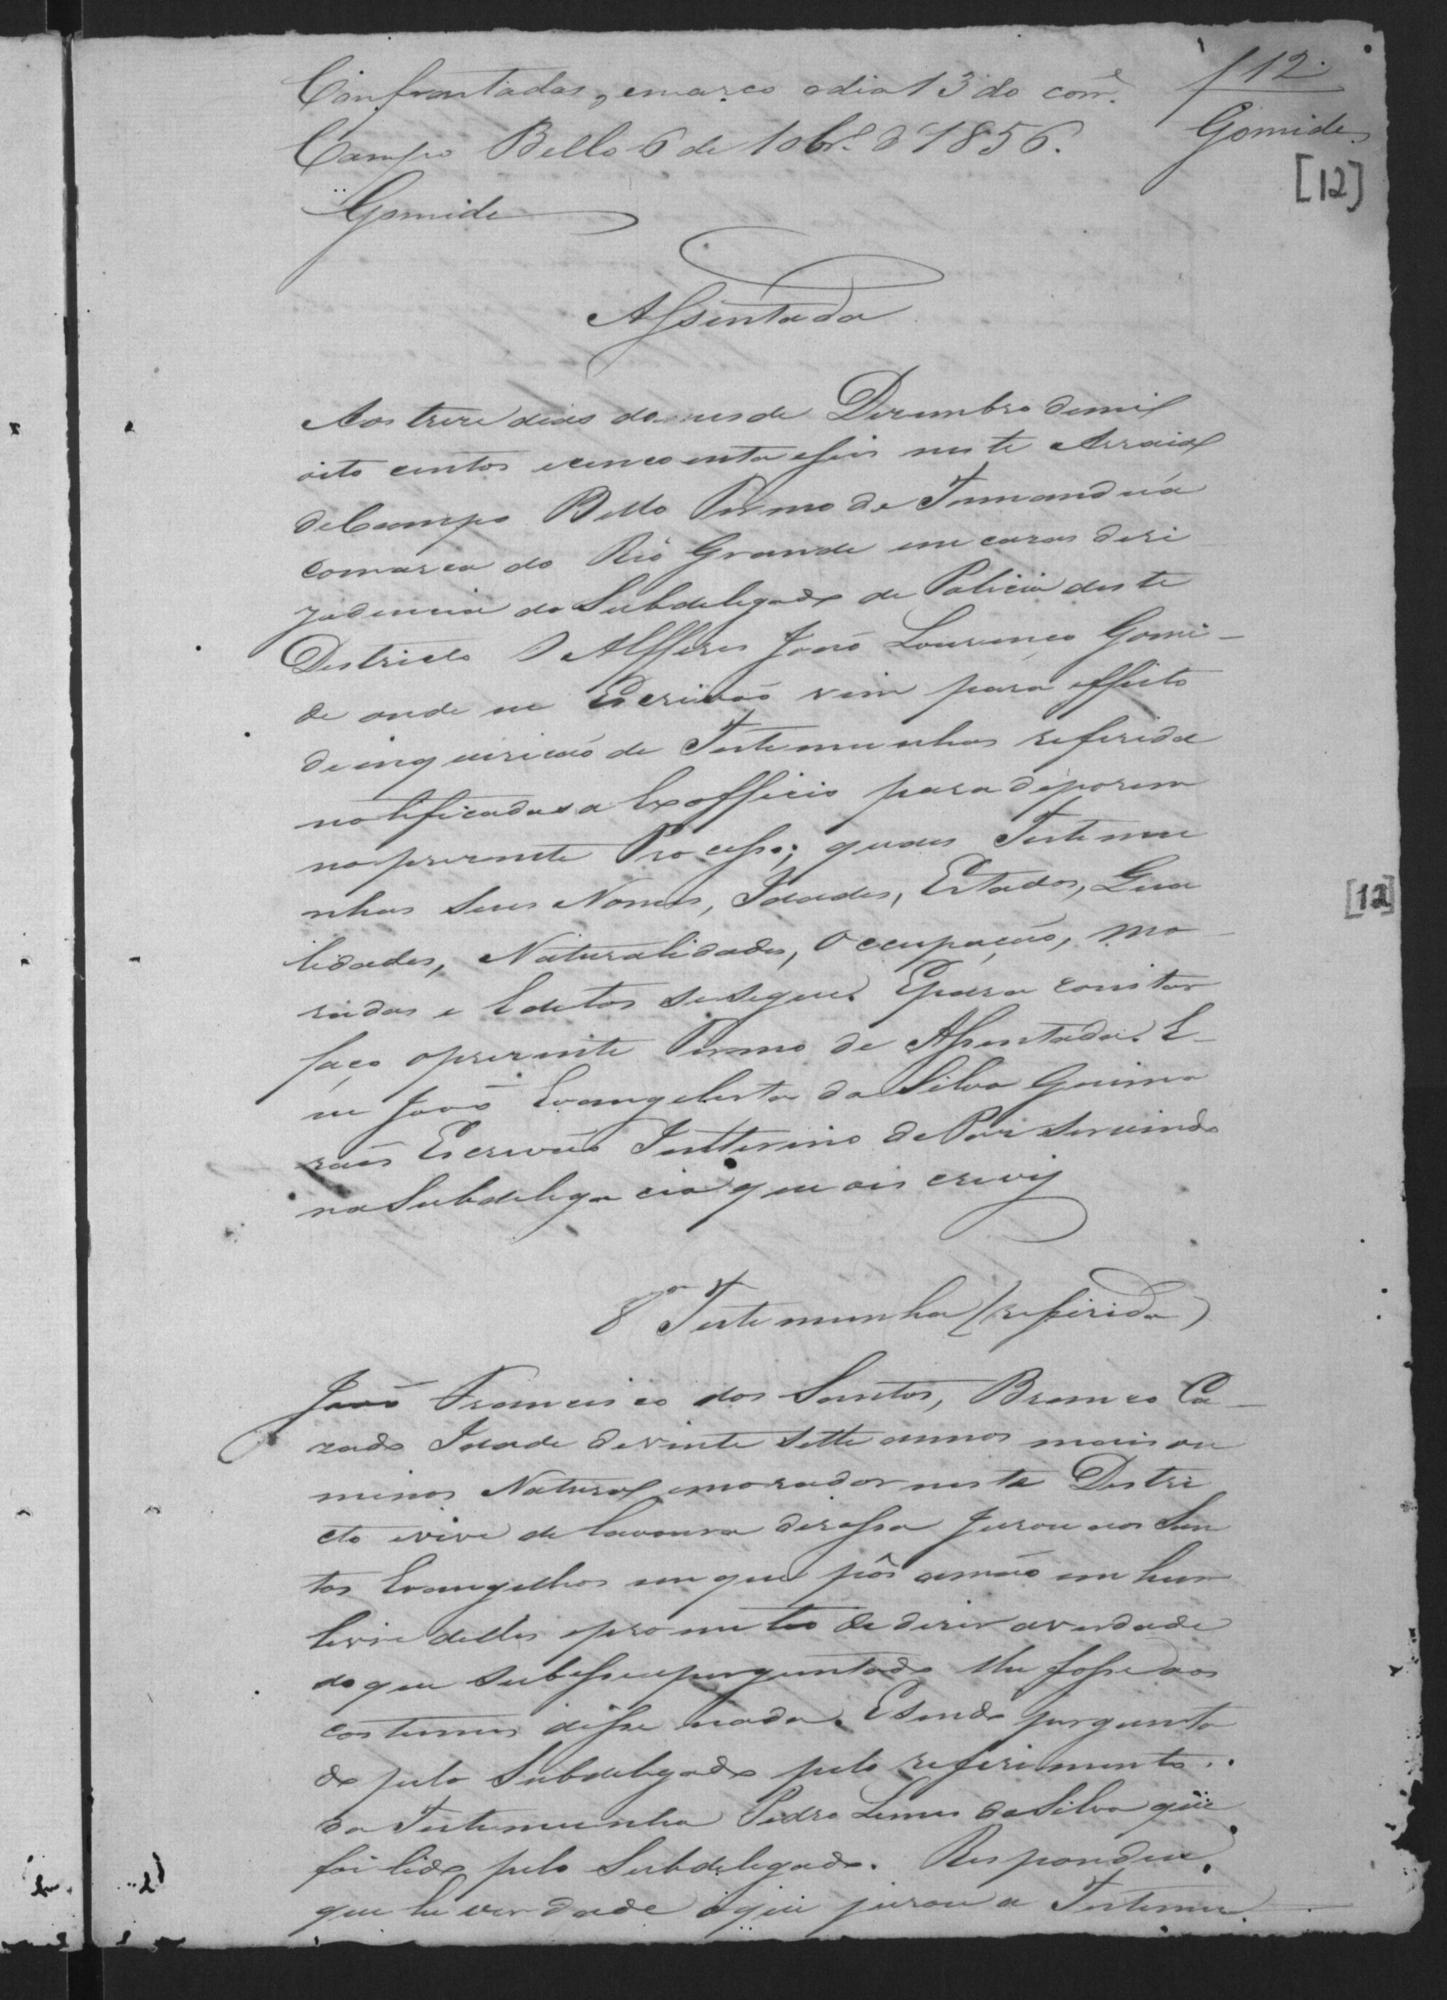 Confrontadas, emarco odia 13 do corr.e
f 12.
Campo Bello 6 de 10br.o d'1856.
Gomide
[12]
Gomide
Assentada
Aos treze dias do mes de Dezembro demil
oito centos ecincoenta eseis neste Arraial
deCampo Bello Termo de Tamanduá
comarca do Rio Grande em cazas derezi
zidencia do Subdelegado de Policia deste
Districto o Alfferes João Lourenco Gomi-
de onde eu Escrivão vim para effeito
deinquirição de Testemunhas referida
notificadas a Exofficio para deporem
nopresente Processo; quaes Testemu
nhas seus Nomes, Idades, Estados, Qua
lidades, Naturalidades, Occupação, Mo-
radas e Editos sesegue. Epara constar
faço opresente Termo de Assentada. E-
eu João Evangelista da Silva Guima
raes Escrivão Intterino dePaz servindo
naSubdelegacia queoescrevy
8.a Testemunha (referida)
João Francisco dos Santos, Branco Ca-
zado Idade devinte sette annos mais ou
menos Natural emorador neste Distri
cto evive de lavoura dirossa Jurou aos San
tos Evangelhos em que pôs amão em hum
livro delles eprometeo dedizer averdade
do que subesse eperguntado lhe fosse aos
costumes disse nada. Esendo pergunta
do pelo Subdelegado pelo referimento
da Testemunha Pedro Lemes daSilva que
foi lido pelo Subdelegado. Respondeu
que he verdade oque jurou a Testemu
[12]